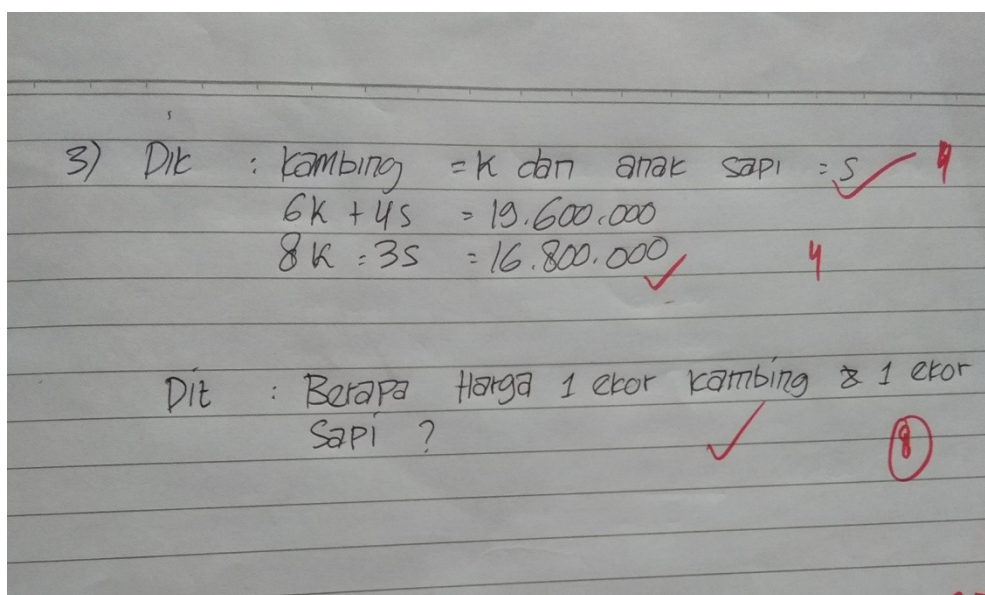 3) Dik : Kambing = K dan anak sapi = S
6K + 4S = 19.600.000
8K = 3S = 16.800.000
4
Dit : Berapa Harga 1 ekor kambing & 1 ekor
Sapi ?
8